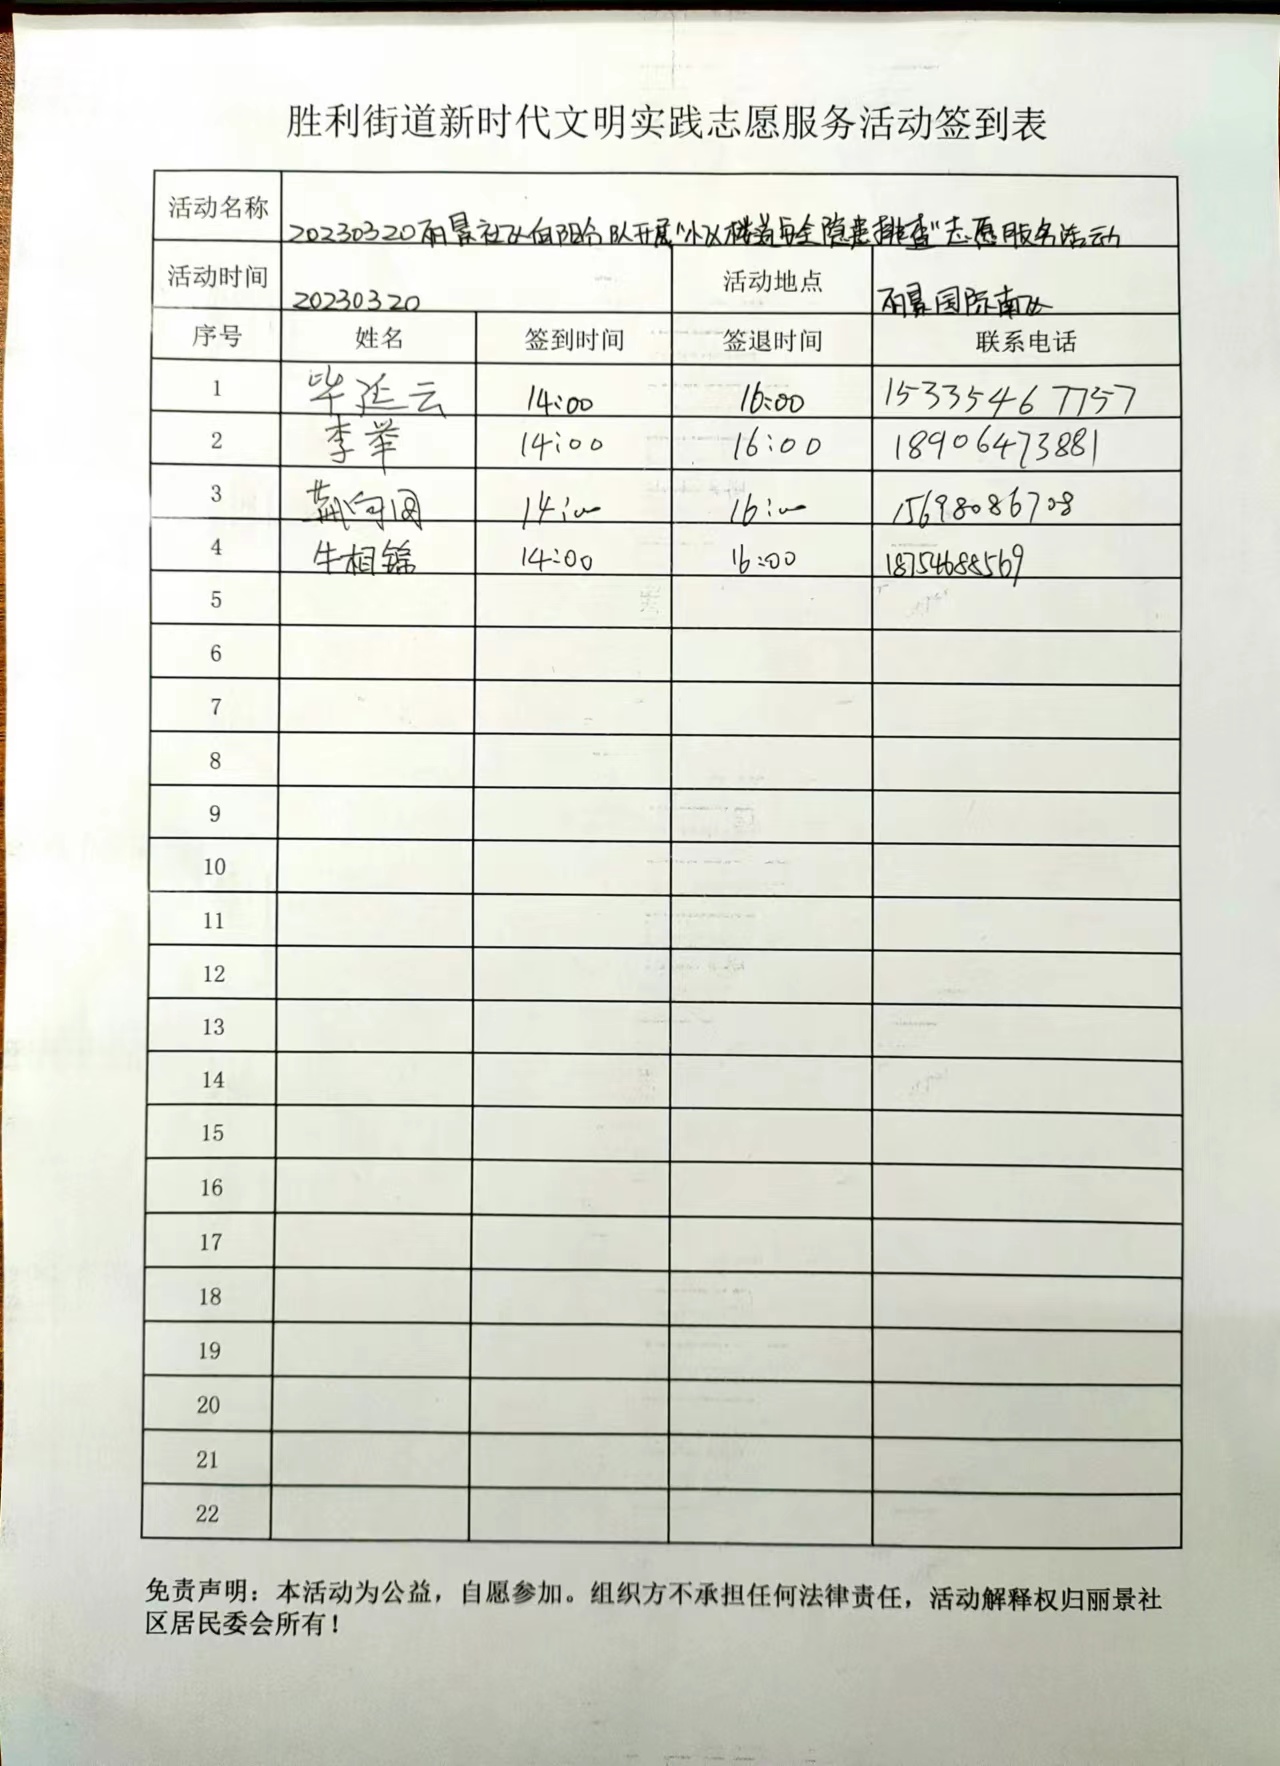 胜利街道新时代文明实践志愿服务活动签到表
活动名称 20230320丽景社区向阳分队开展"小区楼道安全隐患排查"志愿服务活动
活动时间 20230320 活动地点 丽景国际南区
序号 姓名 签到时间 签退时间 联系电话
1 毕延云 14:00 16:00 15335467757
2 李举 14:00 16:00 18906473881
3 14:00 16:00 15698086708
4 牛相锦 14:00 16:00 18754688569
5
6
7
8
9
10
11
12
13
14
15
16
17
18
19
20
21
22
免责声明：本活动为公益，自愿参加。组织方不承担任何法律责任，活动解释权归丽景社
区居民委会所有！